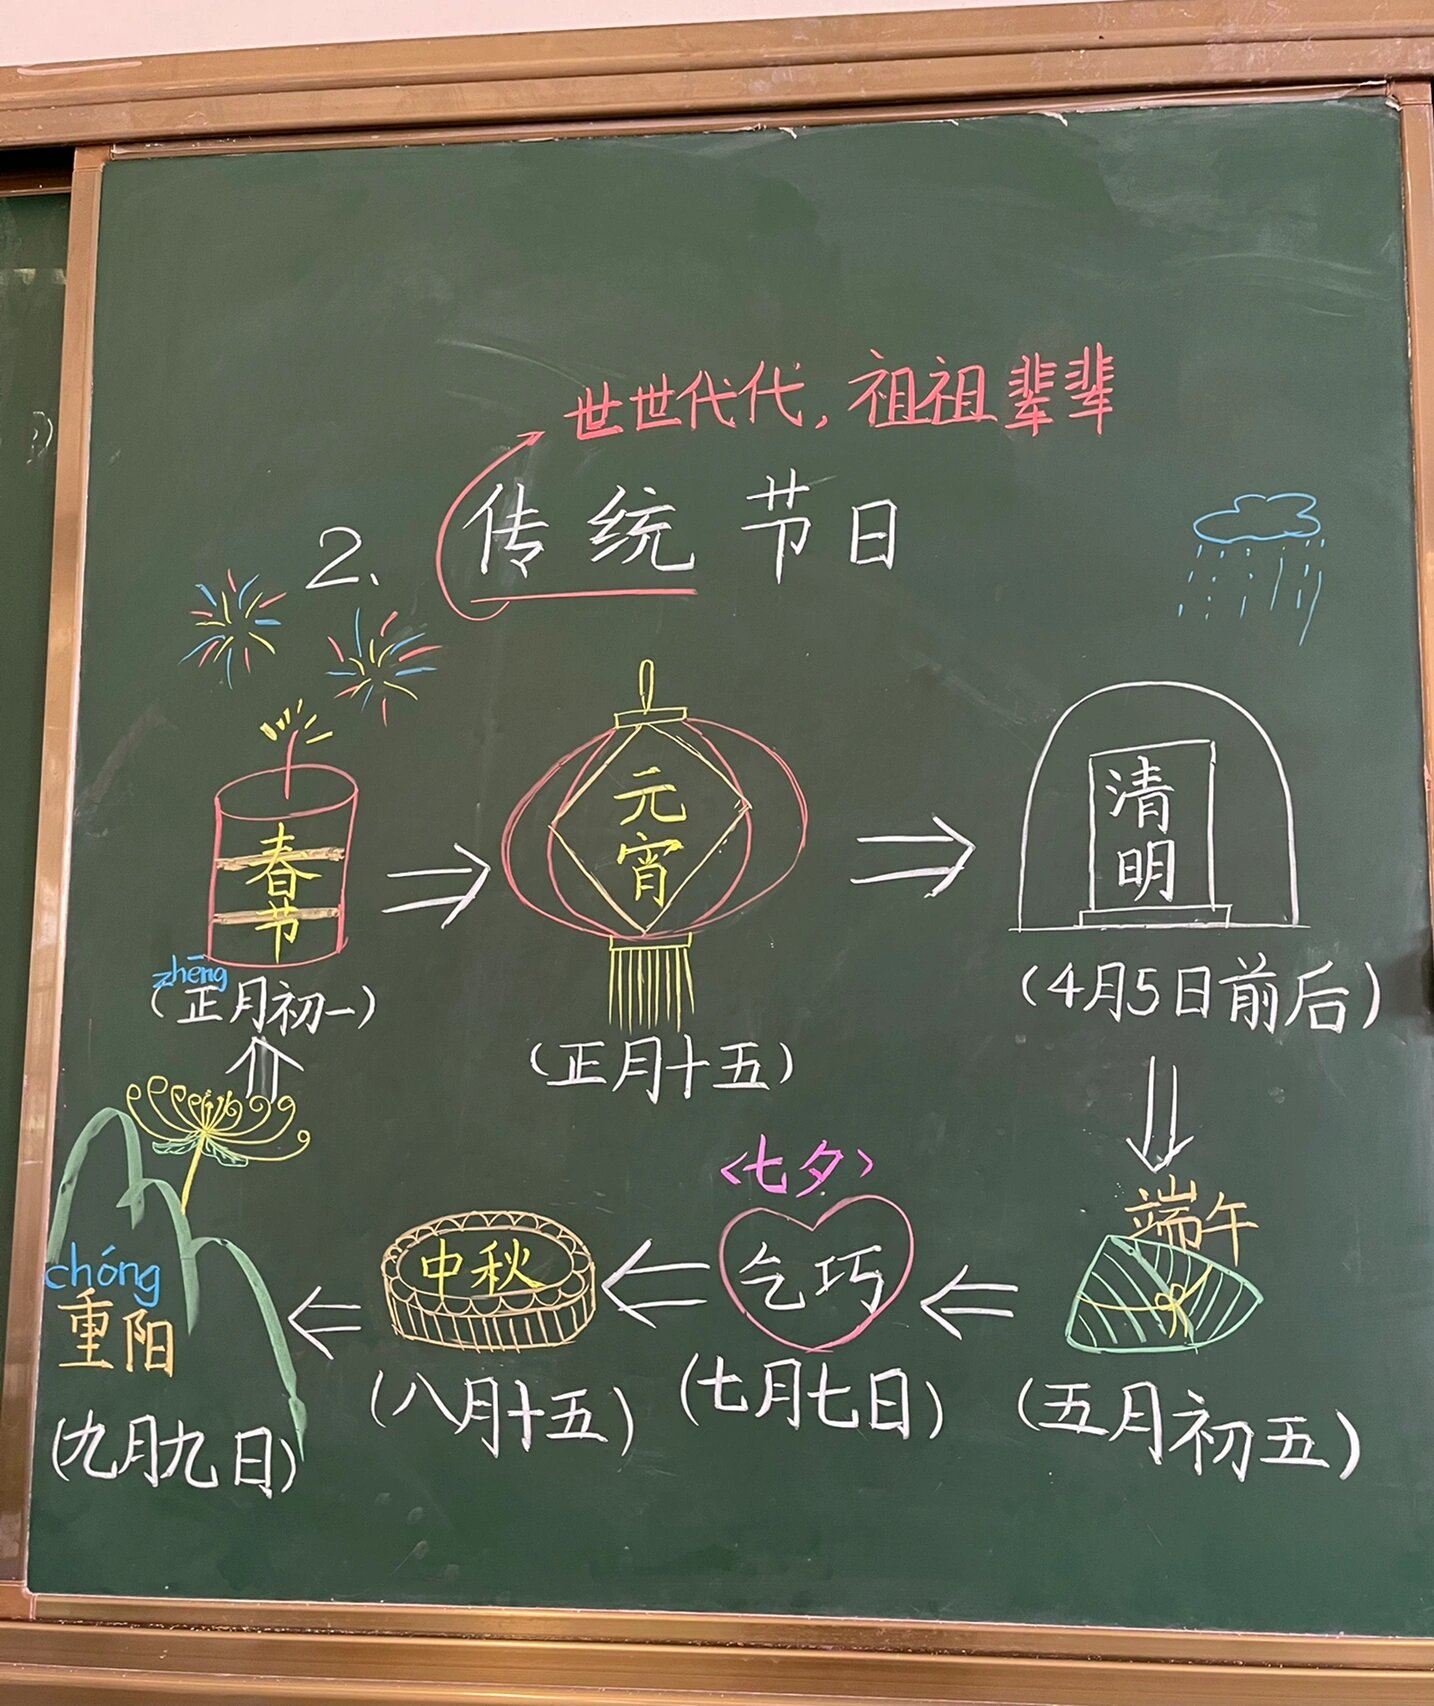 世世代代，祖祖辈辈
2、传统节日
春节
zhēng
(正月初一)
元宵
(正月十五)
清明
(4月5日前后)
端午
(五月初五)
<七夕>
乞巧
(七月七日)
中秋
(八月十五)
chóng
重阳
(九月九日)